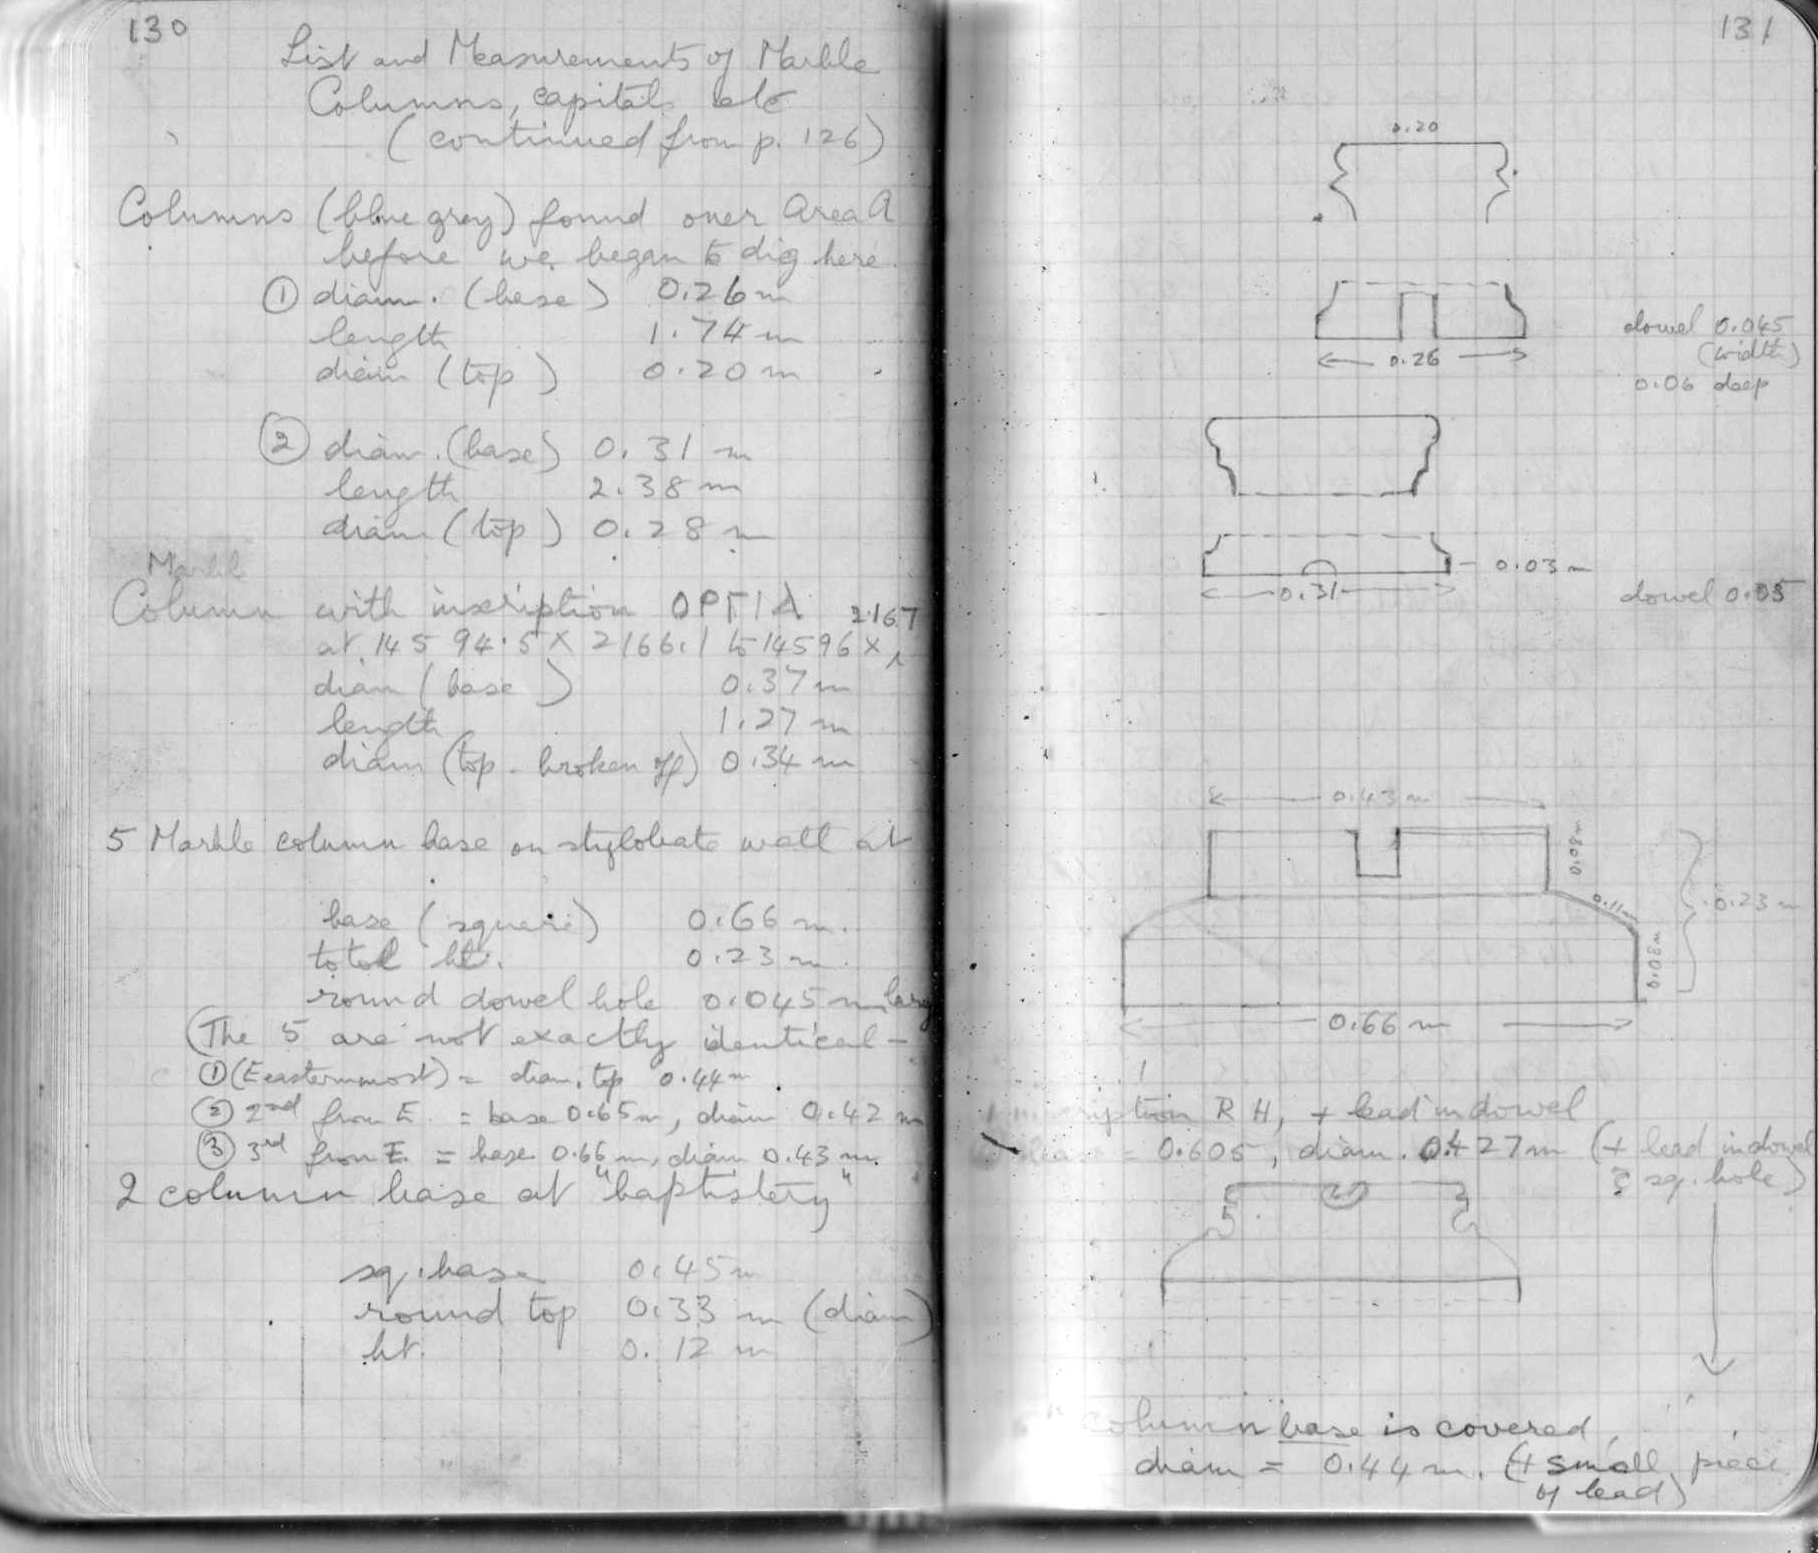 130
List and Measurements of Marble
Columns, capitals etc
(continued from p. 126)
Columns (blue grey) found over Area A
before we began to dig here.
① diam. (base) 0.26 m
length 1.74 m
diam (top) 0.20 m
② diam. (base) 0.31 m
length 2.38 m
diam (top) 0.28 m
Marble
Column with inscription OPTIA 2167
at 14594.5 × 2166.1 to 14596 ×
diam (base) 0.37 m
length 1.27 m
diam (top - broken off) 0.34 m
5 Marble column base on stylobate wall at
base (square) 0.66 m.
total ht. 0.23 m.
round dowel hole 0.045 m
(The 5 are not exactly identical -
① (Easternmost) = diam. top 0.44 m
② 2nd from E. = base 0.65 m, diam 0.42 m
③ 3rd from E. = base 0.66 m, diam 0.43 m.
2 column base at "baptistery"
sq. base 0.45 m
round top 0.33 m (diam)
ht. 0.12 m
131
0.20
dowel 0.045
(width)
0.06 deep
0.26
0.03 m
0.31
dowel 0.05
0.43 m
0.08 m
0.11 m
0.23 m
0.08 m
0.66 m
RH, + lead in dowel
= 0.605, diam. 0.427 m (+ lead in dowel
& sq. hole)
column base is covered
diam = 0.44 m. (+ small piece
of lead)